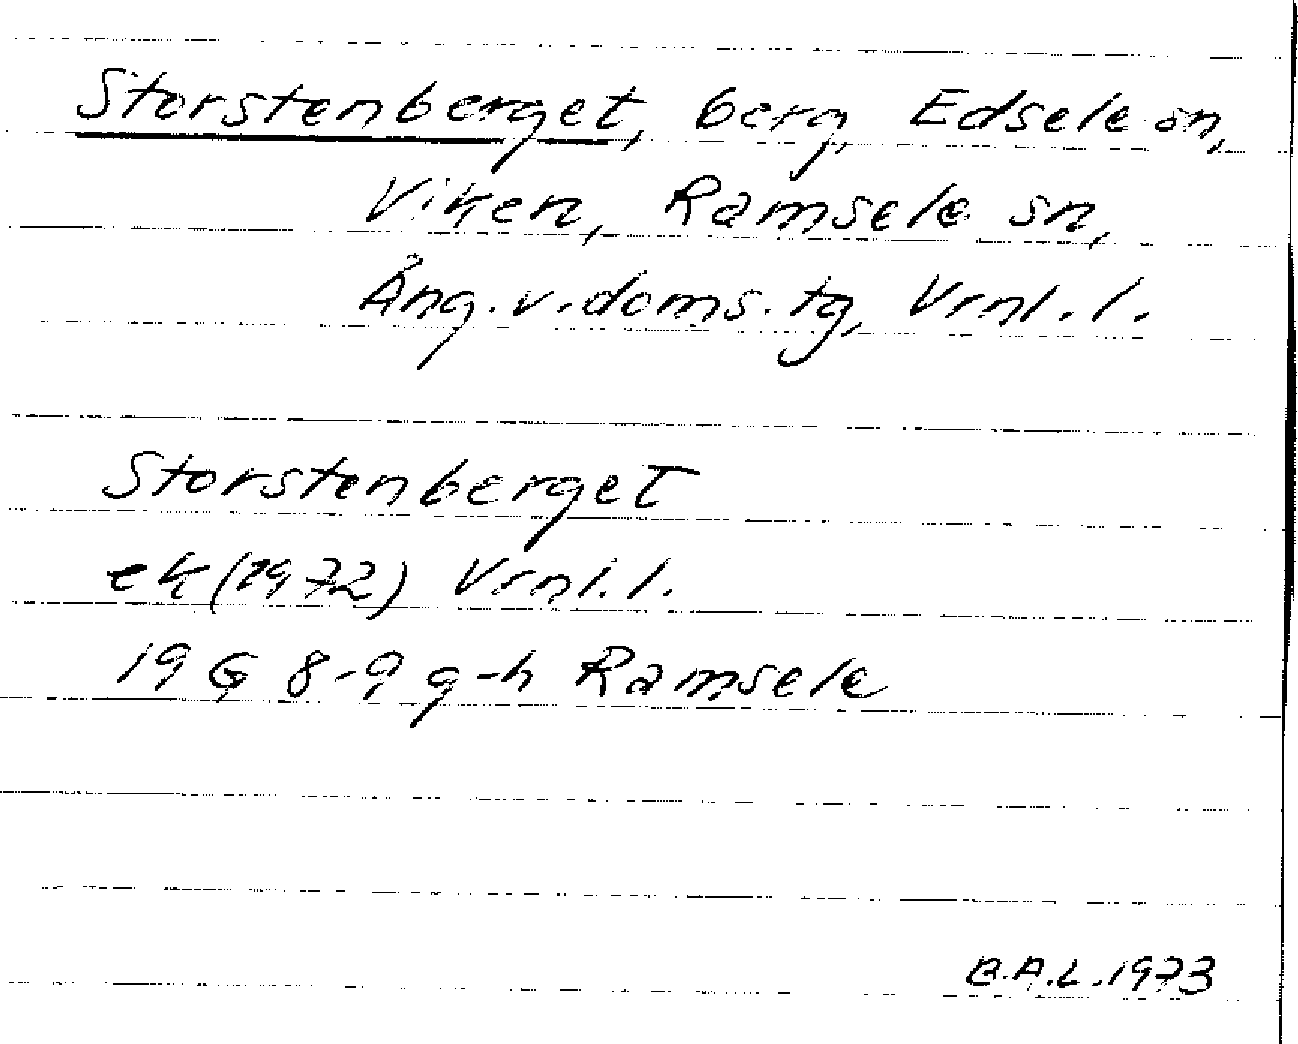 Storstenberget, berg, Edsele sn,
Viken, Ramsele sn,
Ång. v. doms. tg, Vrnl. l.
Storstenberget
ek (1972) Vrnl. l.
19 G 8-9 g-h Ramsele
B.A.L. 1973